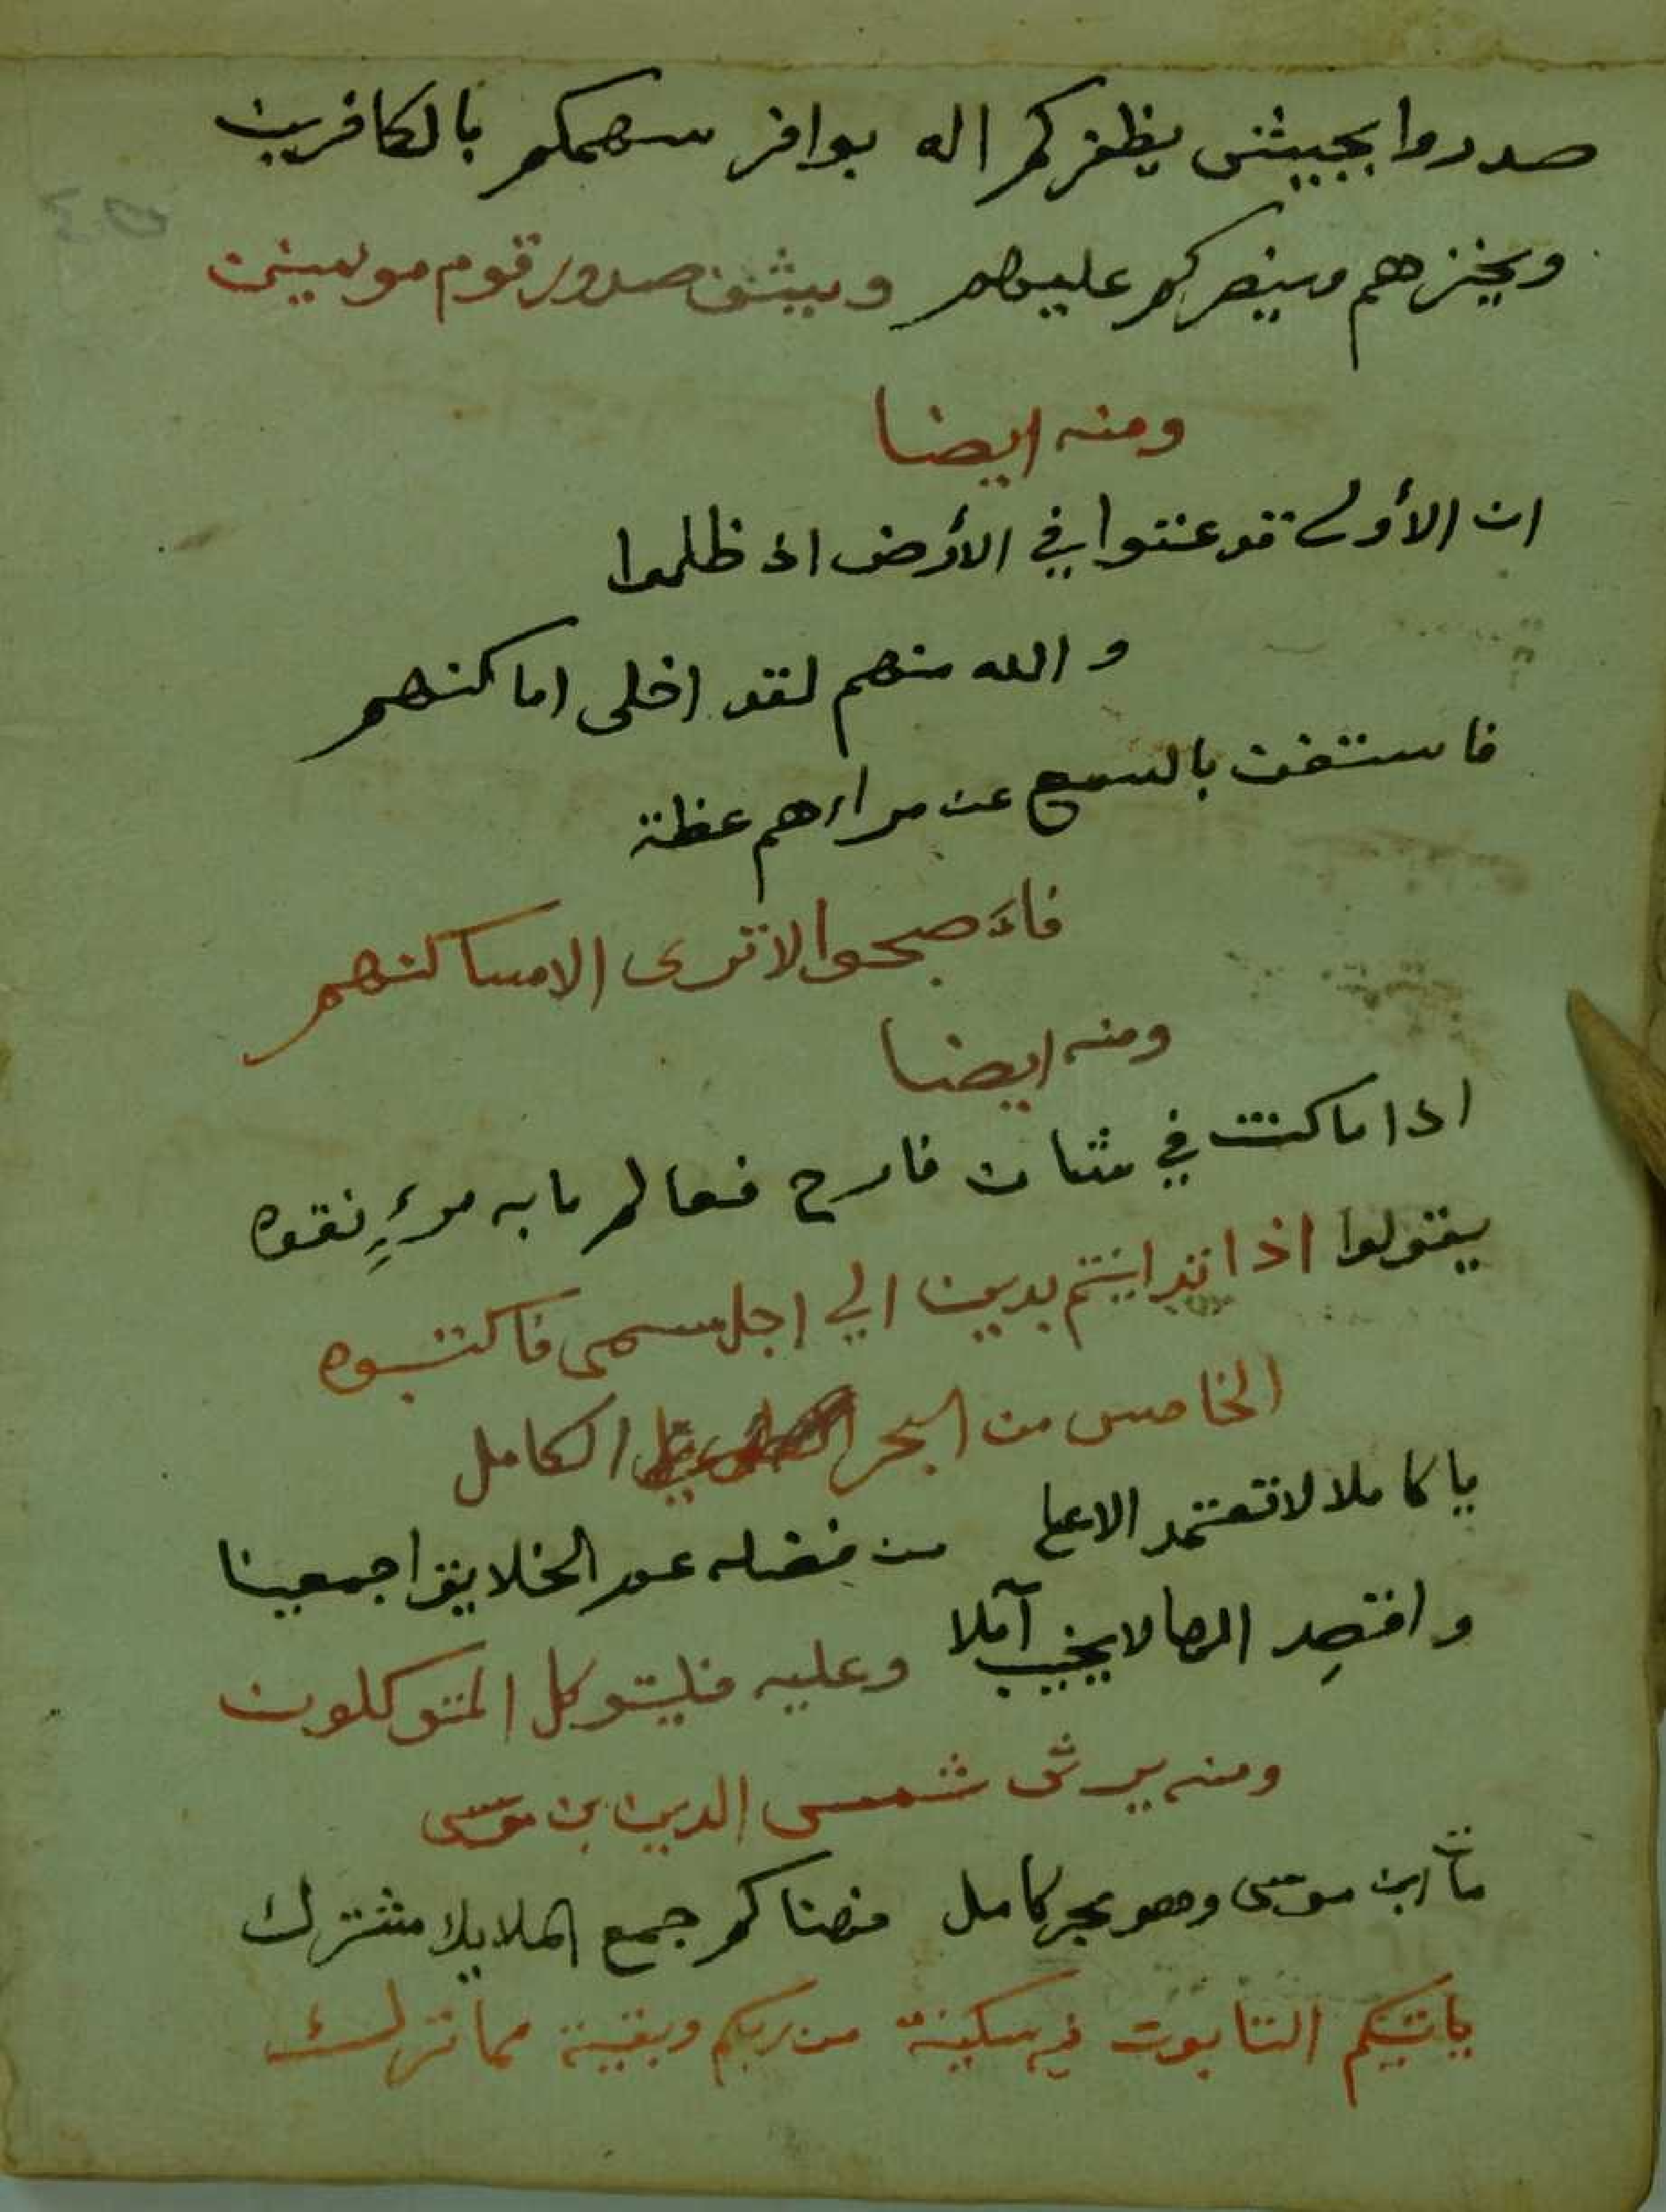 صدروا بجيش يظفركم اله بوافر سهمكم بالكافرين
ويخزهم وينصركم عليهم ويشف صدور قوم مومنين
ومنه ايضا
ان الأولى قد عتوا في الأرض اذ ظلموا
والله منهم لقد اخلى اماكنهم
فاستغن بالسمع عن مراءهم عظة
فاصبحوا لا ترى الا مساكنهم
ومنه ايضا
اذا ما كنت في شان فارح فعالم ما به مرءٍ نقوه
يقولوا اذا تداينتم بدين الي اجل مسمى فاكتبوه
الخامس من البحر الكامل
يا كاملا لا تعتمد الا على من فضله عم الخلايق اجمعينا
واقتصد الها لا يخيب آملا وعليه فليتوكل المتوكلون
ومنه يرثى شمس الدين بن موسى
مات ابن موسى وهو بحر كامل فهناكم جمع الملايك مشترك
ياتيكم التابوت فيه سكينة من ربكم وبقية مما ترك